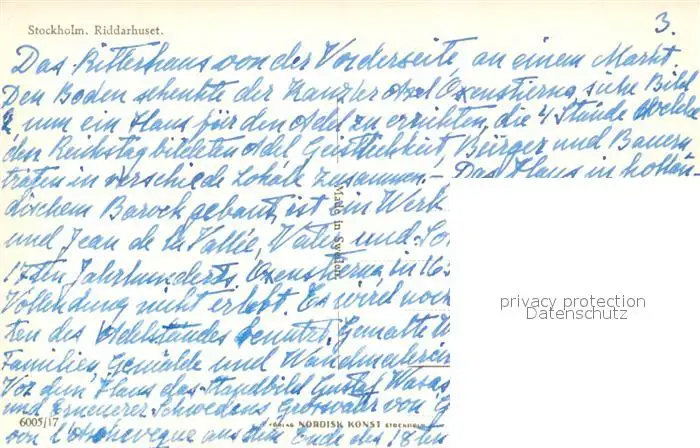 Stockholm. Riddarhuset.
3.
Das Ritterhaus von der Vorderseite, an einem Markt
Den Boden schenkte der Kanzler Axel Oxenstierna, siehe Bild
2 um ein Haus für den Adel zu errichten, die 4 Stände welche
den Reichstag bildeten Adel Geistlichkeit, Bürger und Bauern
trafen in verschiede Lokale zusammen. – Das Haus in hollän-
dischem Barock gebaut, ist ein Werk
und Jean de la Vallée, Vater und So
17ten Jahrhunderts. Oxenstierna, in 16
Vollendung nicht erlebt. Es wird noch
ten des Adelstandes benutzt. Gemalte W
Familien, Gemälde und Wandmalereien
Vor dem Haus das Standbild Gustaf Wasas
und Erneuerer Schwedens Grossvater von G
von l'Archeveque aus dem Ende des 18ten
Made in Sweden
privacy protection
Datenschutz
6005/17
FÖRLAG NORDISK KONST STOCKHOLM